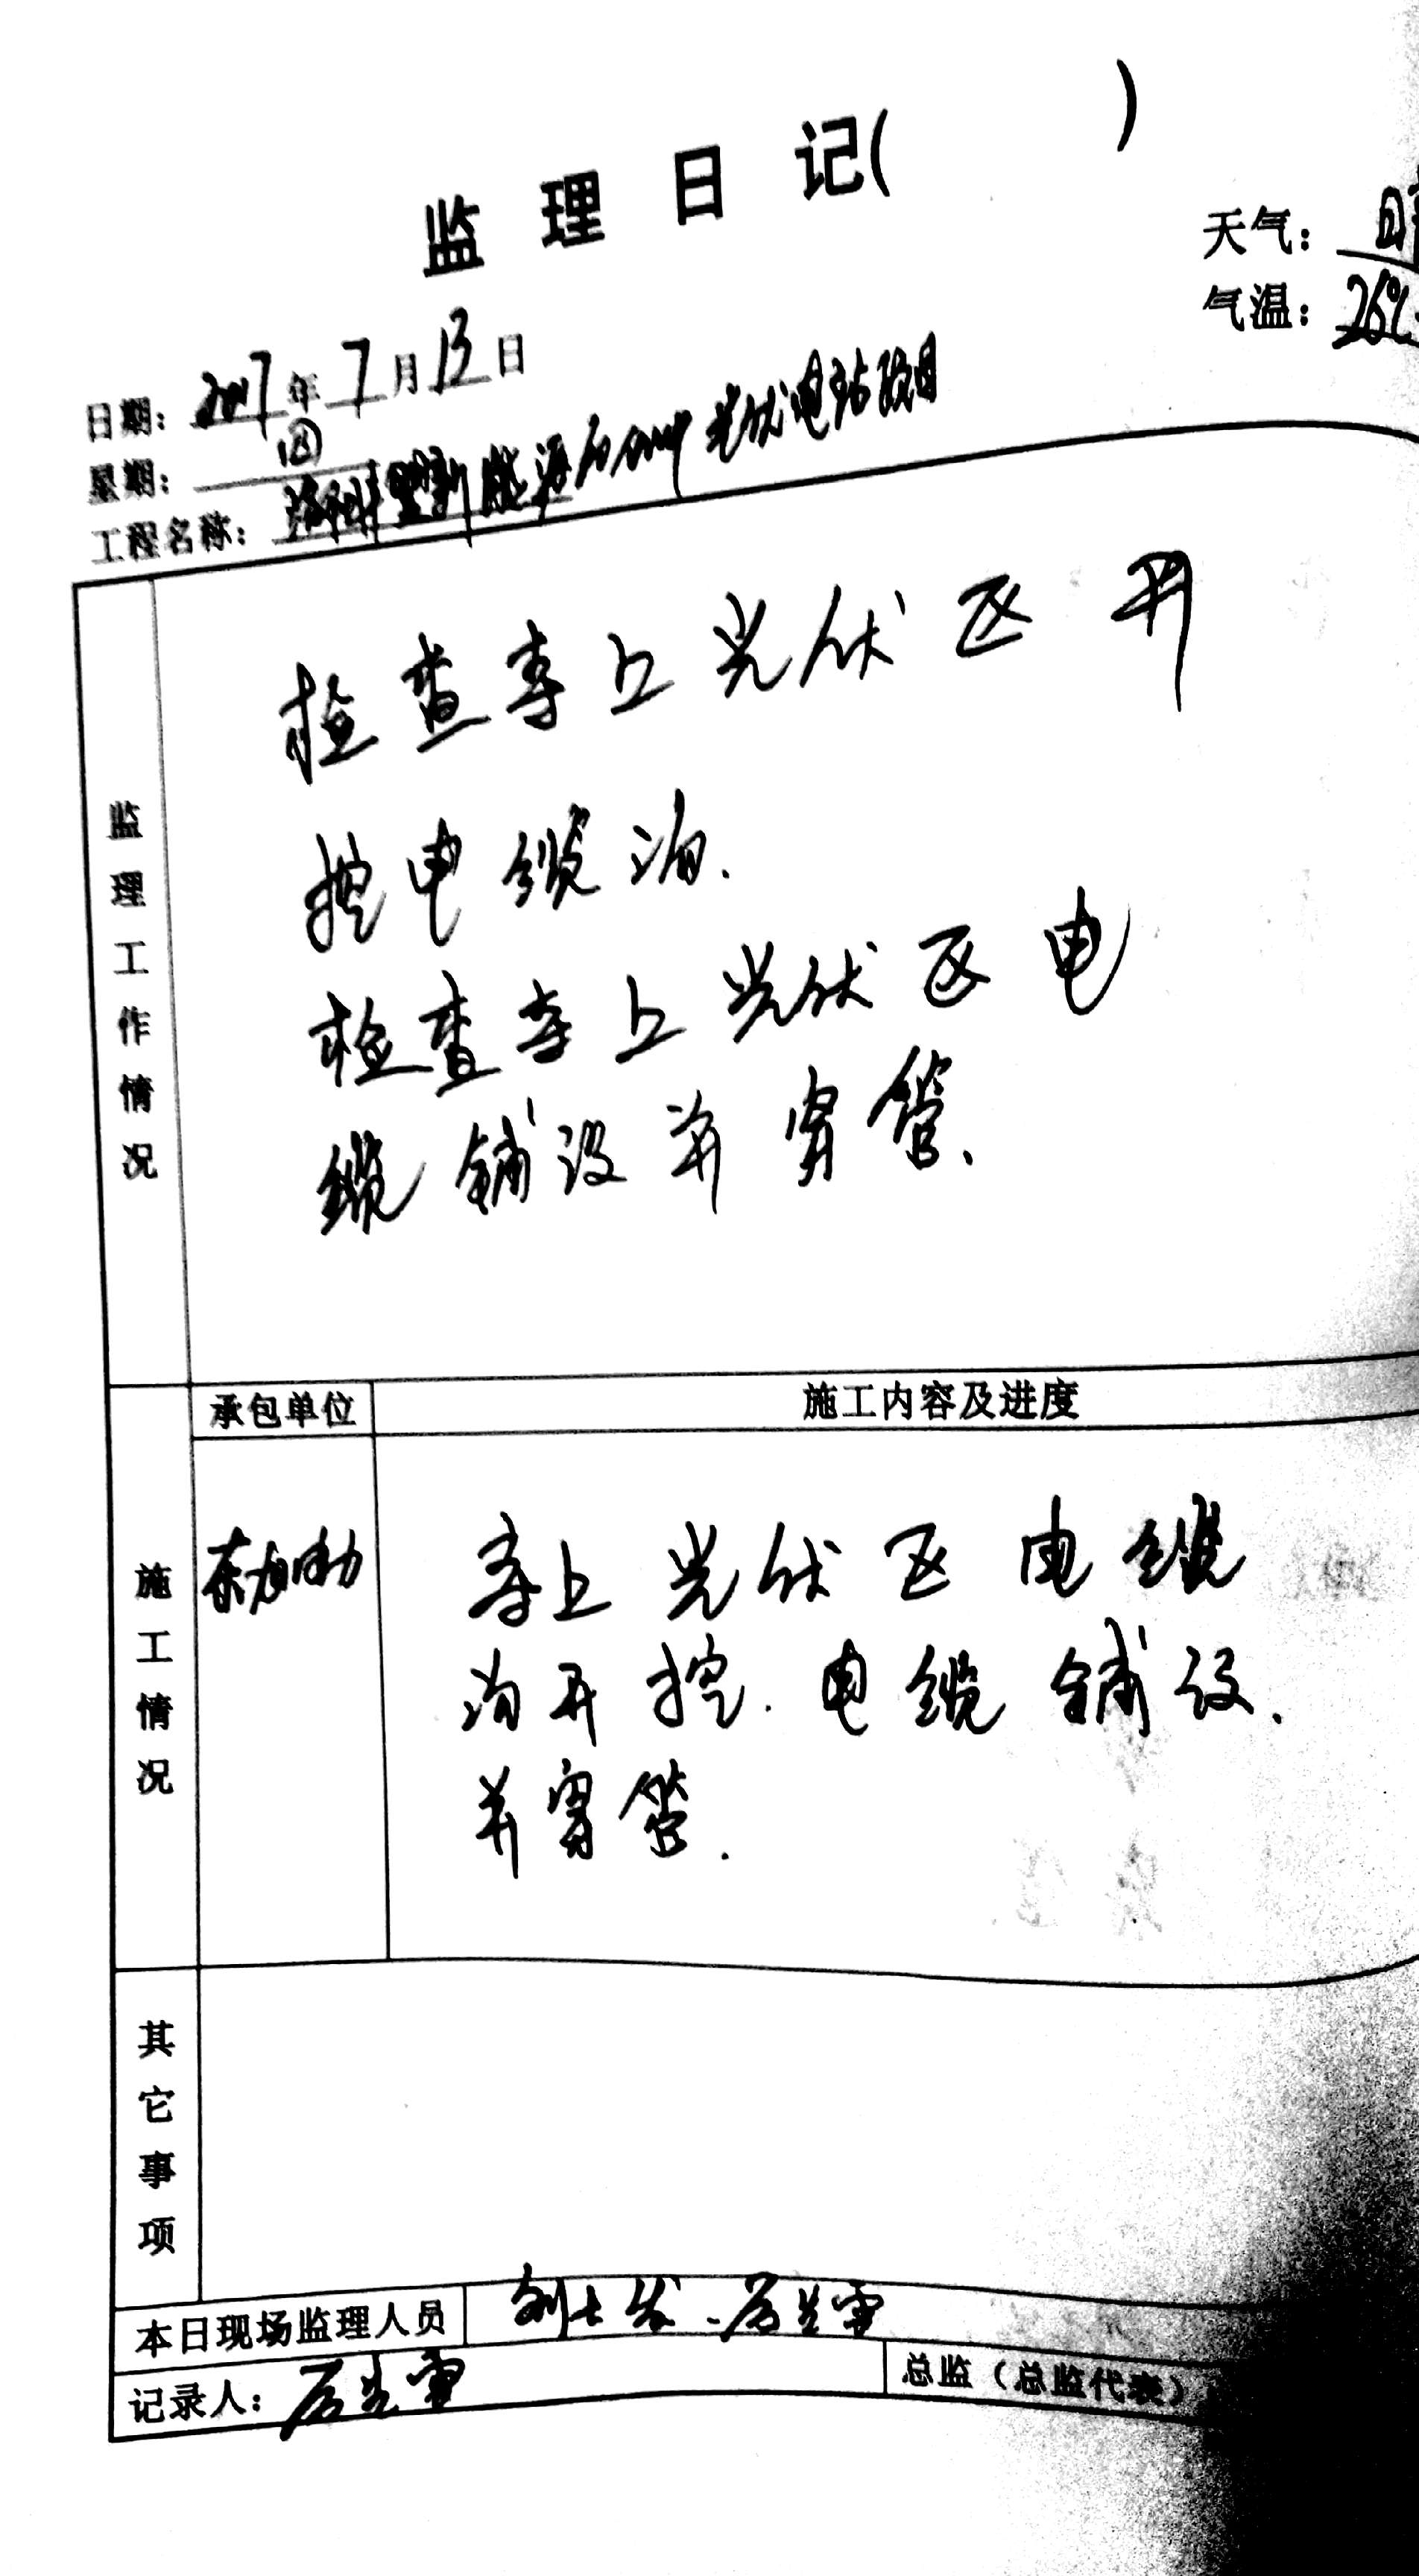 监理日记( )
天气：
气温：26℃
日期：2017年7月13日
星期：四
工程名称：新能源 光伏电站项目
检查寺上光伏区开
挖电缆沟.
检查寺上光伏区电
缆铺设并穿管.
监理工作情况
承包单位 施工内容及进度
施工情况
寺上光伏区电缆
沟开挖.电缆铺设.
并穿管.
其它事项
本日现场监理人员
记录人： 总监（总监代表）